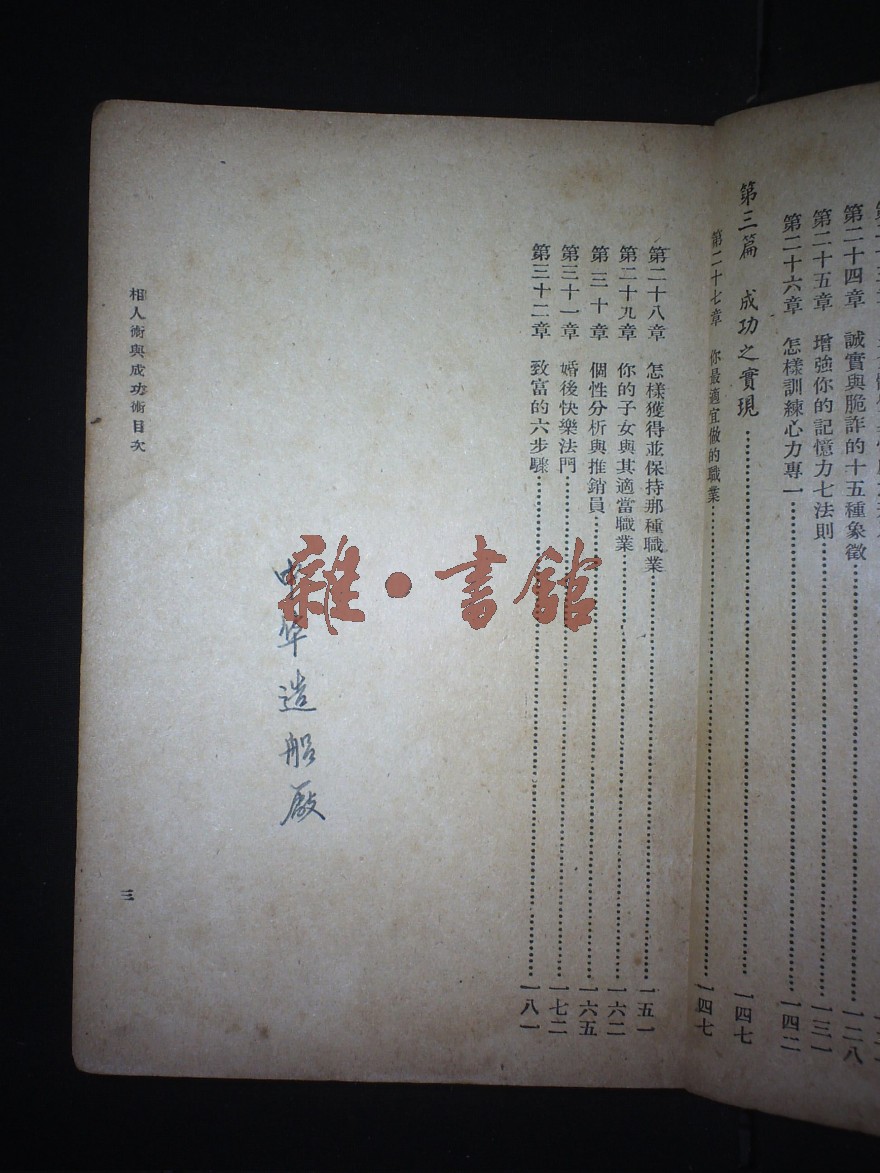 第二十四章 誠實與脆詐的十五種象徵……一二八
第二十五章 增強你的記憶力七法則……一三一
第二十六章 怎樣訓練心力專一……一四二
第三篇 成功之實現……一四七
第二十七章 你最適宜做的職業……一四七
第二十八章 怎樣獲得並保持那種職業……一五一
第二十九章 你的子女與其適當職業……一六二
第三十章 個性分析與推銷員……一六五
第三十一章 婚後快樂法門……一七二
第三十二章 致富的六步驟……一八一
中华造船厰
雜·書館
相人術與成功術目次
三